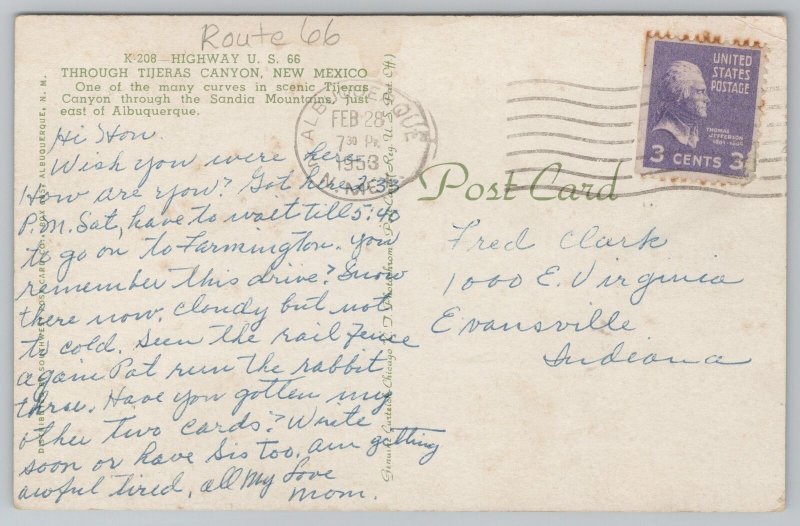 Route 66
K-208 HIGHWAY U. S. 66
THROUGH TIJERAS CANYON, NEW MEXICO
One of the many curves in scenic Tijeras
Canyon through the Sandia Mountains, just
east of Albuquerque.
Hi Hon.
Wish you were here
How are you? Got here 2:35
P.M. Sat, have to wait till 5:40
to go on to Farmington. you
remember this drive? Snow
there now. cloudy but not
to cold. Seen the rail fence
again Pat run the rabbit
threw. Have you gotten my
other two cards? Write
soon or have Sis too. am getting
awful tired, all My Love
Mom.
ALBUQUERQUE
FEB 28
7 30 PM
1953
N. MEX.
Post Card
UNITED
STATES
POSTAGE
THOMAS
JEFFERSON
1801-1809
3 CENTS 3
Fred Clark
1000 E. Virginia
Evansville
Indiana
DISTRIBUTED BY SOUTHWEST POST CARD CO., ALBUQUERQUE, N. M.
Genuine Curteich-Chicago "C. T. Photochrom" Post Card (Reg. U. S. Pat. Off.)